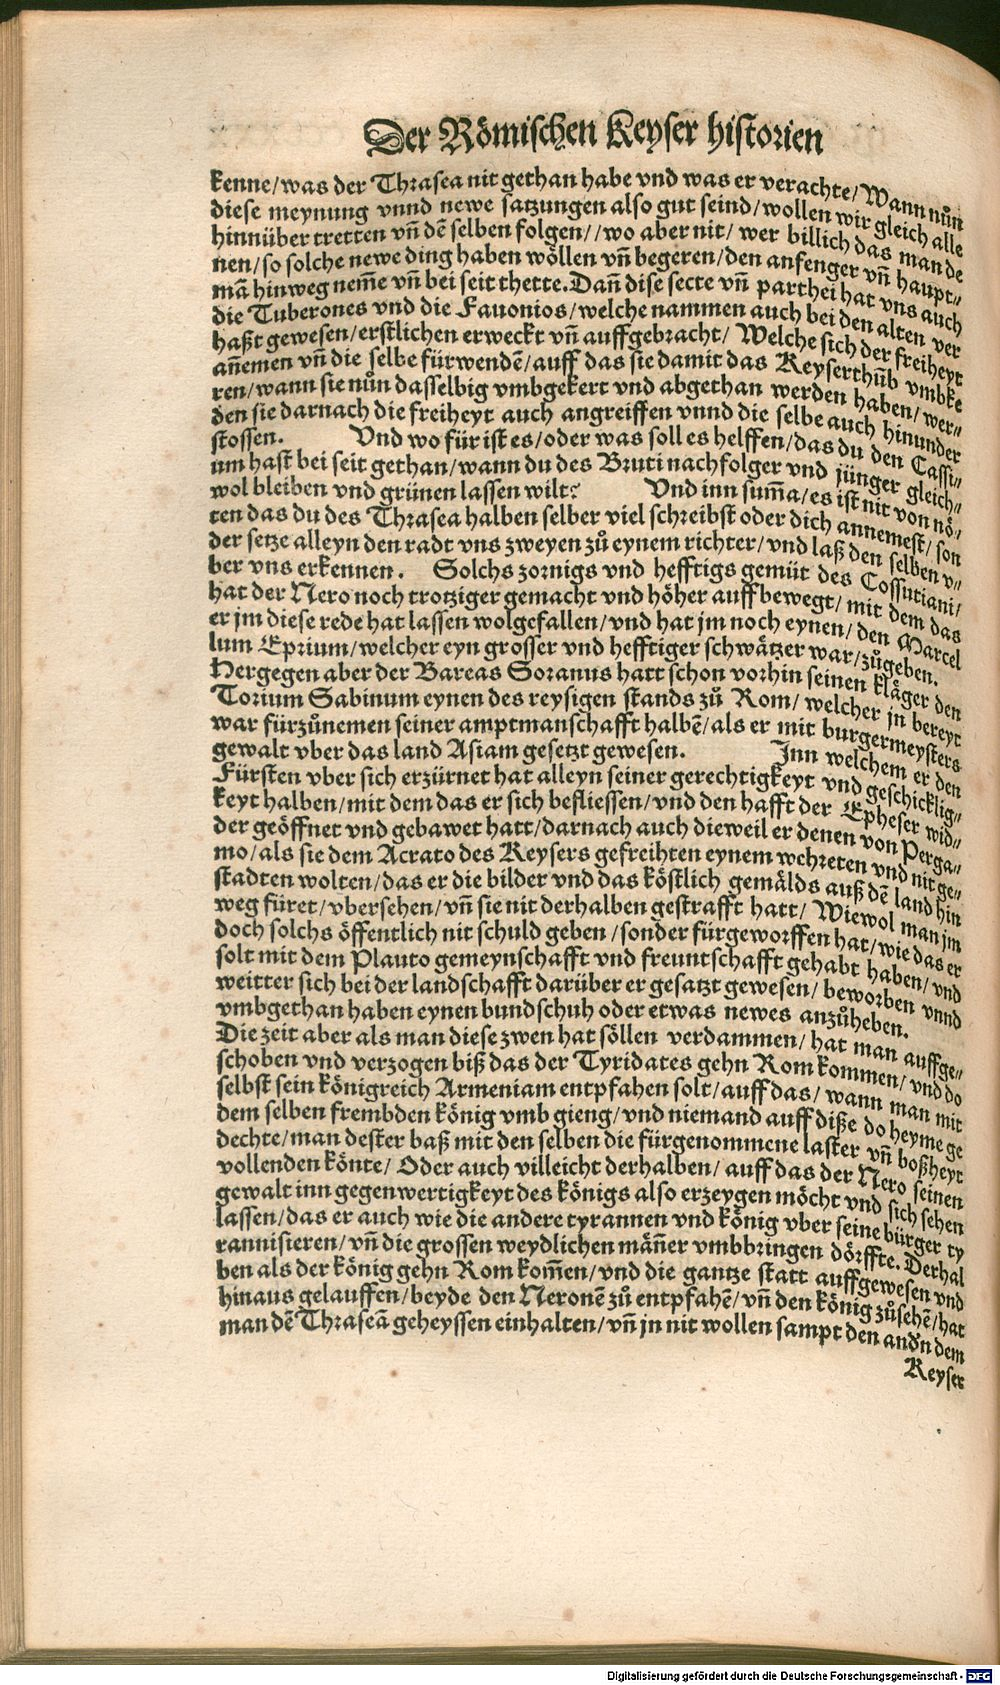 Der Römischen Keyser historien
kenne/was der Thrasea nit gethan habe vnd was er verachte/Wann nůn
diese meynung vnnd newe satzungen also gut seind/wollen wir gleich alle
hinnüber tretten vñ dẽ selben folgen//wo aber nit/ wer billich das man de
nen/so solche newe ding haben wöllen vñ begeren/den anfenger vñ haupt⸗
mã hinweg neme͂ vñ bei seit thette. Dañ dise secte vñ parthei hat vns auch
die Tuberones vnd die Fauonios/welche nammen auch bei den alten ver
haßt gewesen/erstlichen erweckt vñ auffgebracht/ Welche sich der freiheyt
añemen vñ die selbe fürwendẽ/auff das sie damit das Keyserthůb vmbke
ren/wann sie nůn dasselbig vmbgekert vnd abgethan werden haben/wer⸗
den sie darnach die freiheyt auch angreiffen vnnd die selbe auch hinunder
stossen. Vnd wo für ist es/oder was soll es helffen/das du den Cassi⸗
um hast bei seit gethan/wann du des Bruti nachfolger vnd jünger gleich⸗
wol bleiben vnd grünen lassen wilt? Vnd inn sum̃a/es ist nit von nö⸗
ten das du des Thrasea halben selber viel schreibst oder dich annemest/son
der setze alleyn den radt vns zweyen zů eynem richter/vnd laß den selben v⸗
ber vns erkennen. Solchs zornigs vnd hefftigs gemüt des Cossutiani/
hat der Nero noch trotziger gemacht vnd höher auff bewegt/ mit dem das
er jm diese rede hat lassen wolgefallen/vnd hat jm noch eynen/den Marcel
lum Eprium/welcher eyn grosser vnd hefftiger schwätzer war/zůgeben.
Hergegen aber der Bareas Soranus hatt schon vorhin seinen kläger den
Torium Sabinum eynen des reysigen stands zů Rom/ welcher jn bereyt
war fürzůnemen seiner amptmanschafft halbẽ/als er mit burgermeysters
gewalt vber das land Asiam gesetzt gewesen. Inn welchem er den
Fürsten vber sich erzürnet hat alleyn seiner gerechtigkeyt vnd geschicklig⸗
keyt halben/mit dem das er sich befliessen/vnd den hafft der Epheser wid⸗
der geöffnet vnd gebawet hatt/darnach auch dieweil er denen von Perga⸗
mo/als sie dem Acrato des Keysers gefreihten eynem wehreten vnd nit ge⸗
stadten wolten/das er die bilder vnd das köstlich gemälds auß dẽ land hin
weg füret/vbersehen/vñ sie nit derhalben gestrafft hatt/ Wiewol man jm
doch solchs öffentlich nit schuld geben/sonder fürgeworffen hat/wie das er
solt mit dem Plauto gemeynschafft vnd freuntschafft gehabt haben/vnd
weitter sich bei der landschafft darüber er gesatzt gewesen/ beworben vnnd
vmbgethan haben eynen bundschuh oder etwas newes anzůheben.
Die zeit aber als man diese zwen hat söllen verdammen/ hat man auffge⸗
schoben vnd verzogen biß das der Tyridates gehn Rom kommen/vnd do
selbst sein königreich Armeniam entpfahen solt/auff das/ wann man mit
dem selben frembden könig vmb gieng/vnd niemand auff diße do heyme ge
dechte/man dester baß mit den selben die fürgenommene laster vñ boßheyt
vollenden könte/ Oder auch villeicht derhalben/ auff das der Nero seinen
gewalt inn gegenwertigkeyt des königs also erzeygen möcht vnd sich sehen
lassen/das er auch wie die andere tyrannen vnd könig vber seine bürger ty
rannisieren/vñ die grossen weydlichen mäñer vmbbringen dörffte. Derhal
ben als der könig gehn Rom kom̃en/vnd die gantze statt auffgewesen vnd
hinaus gelauffen/beyde den Neronẽ zů entpfahẽ/vñ den könig zůsehẽ/hat
man dẽ Thraseã geheyssen einhalten/vñ jn nit wollen sampt den andn dem
Keyser
Digitalisierung gefördert durch die Deutsche Forschungsgemeinschaft - DFG